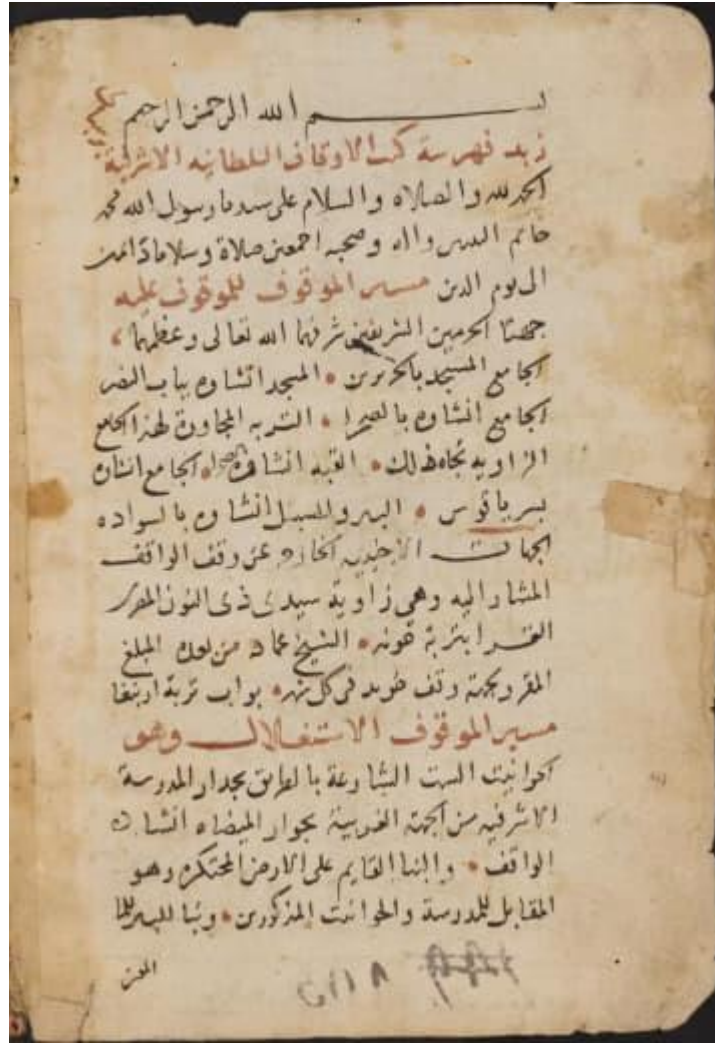 بسم الله الرحمن الرحيم
زبد فهرسة كتب الاوقاف السلطانيه الاشرفية
الحمد لله والصلاه والسلام على سيدنا رسول الله محمد
خاتم النبيين واله وصحبه اجمعين صلاة وسلاما دائمين
الى يوم الدين الموقوف للموقوف عليه
جهتا الحرمين الشريفين شرفهما الله تعالى وعظمهما
الجامع المسجد بالحريريين المسجد انشاوه بباب النصر
الجامع انشاوه بالصحرا التربه المجاورة لهذا الجامع
الزاويه تجاه ذلك القبه انشاوه الجامع انشاه
بسرياقوس البير والسبيل انشاوه بالسواده
الجهات عن وقف الواقف
المشار اليه وهى زاوية سيدى ذى النون المصرى
بتربة الشيخ عماد المبلغ
المقرر بجهة وقف فى كل بواب تربة
الموقوف الاستغلال وهو
الحوانيت الست الشارعة بالطريق بجدار المدرسة
الاشرفيه من الجهة الغربية بجوار الميضاه انشاه
الواقف والبنا القايم على الارض المحتكره وهو
المقابل للمدرسة والحوانيت المذكورين وبنا